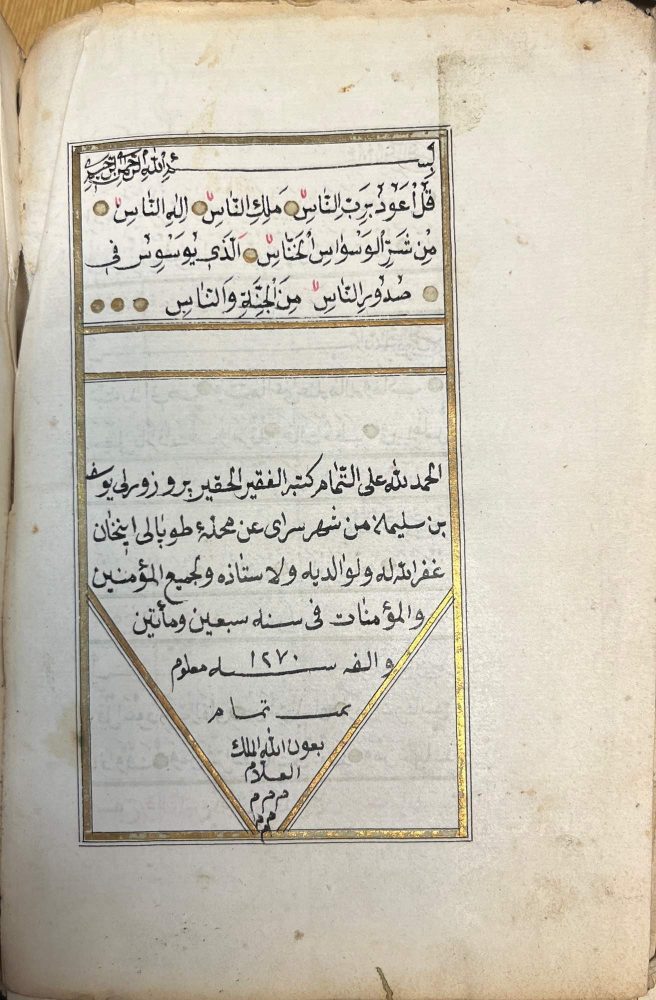 بسم الله الرحمن الرحيم
قُلْ اَعُوذُ بِرَبِّ النَّاسِ مَلِكِ النَّاسِ اِلٰهِ النَّاسِ
مِنْ شَرِّ الْوَسْوَاسِ الْخَنَّاسِ اَلَّذِي يُوَسْوِسُ فِي
صُدُورِ النَّاسِ مِنَ الْجِنَّةِ وَالنَّاسِ
الحمد لله على التمام كتبه الفقير الحقير يوسف
بن سليمان من شهر سراى عن محلهٔ طوپالى اينخان
غفر الله له ولوالديه ولاستاذه ولجميع المؤمنين
والمؤمنات فى سنه سبعين ومأتين
والف سنه ١٢٧٠ معلوم
تمت تمام
بعون الله الملك
العلام
م م م م
م م